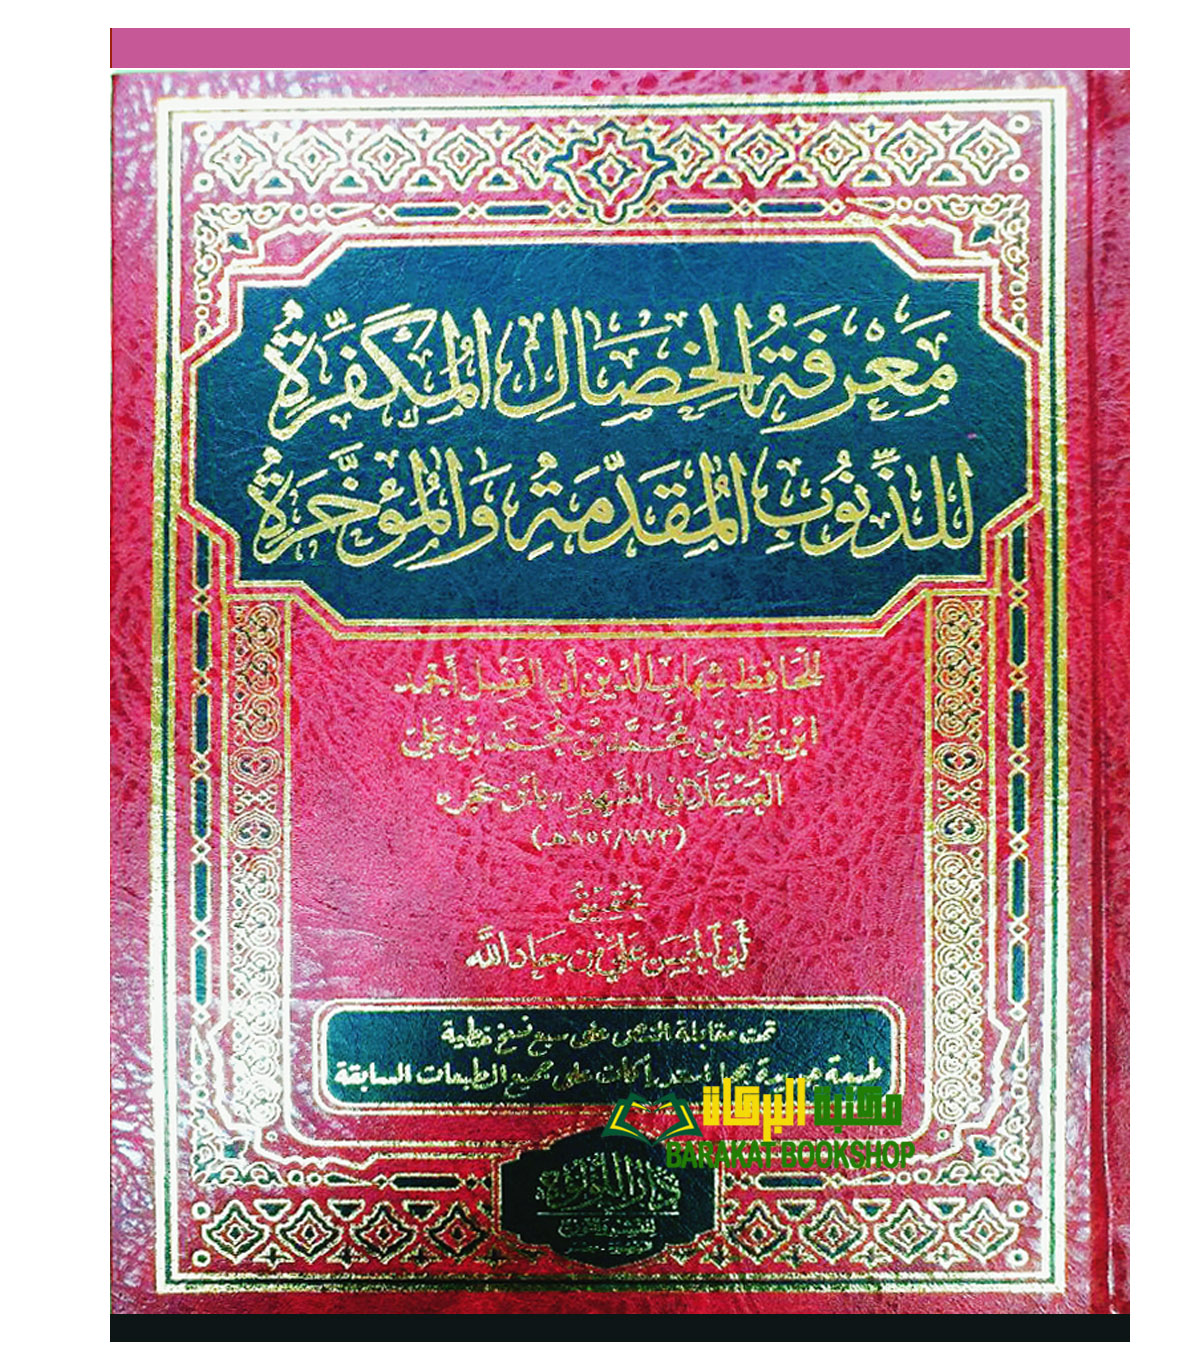 مَعْرِفَةُ الخِصَالِ المُكَفِّرَةُ
للذِّنُوبِ المُقَدَّمَةِ وَالمُؤَخَّرَةُ
للحَافِظِ شِهَابِ الدِّيْنِ أَبِي الفَضْلِ أَحْمَد
ابْنِ عَلِيّ بْنِ مُحَمَّد بْنِ مُحَمَّد بْنِ عَلِيّ
العَسْقَلَانِي الشَّهِيرِ بِابْنِ حَجَر
(٧٧٣/٨٥٢هـ)
تحقيق
أَبِي الحَسَن عَلِيّ بْن جَاد الله
تمت مقابلة النص على سبع نسخ خطية
طبعة جديدة بها استدراكات على جميع الطبعات السابقة
مكتبة البركات
BARAKAT BOOKSHOP